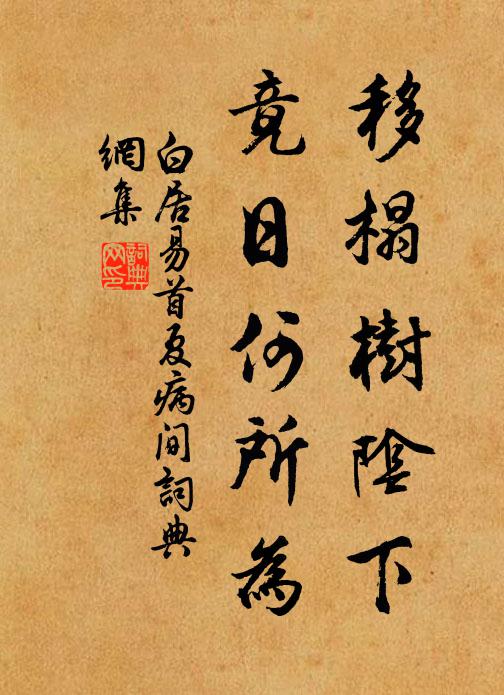 移榻樹陰下
竟日何所為
白居易首夏病間詞典
網集
詞典網印